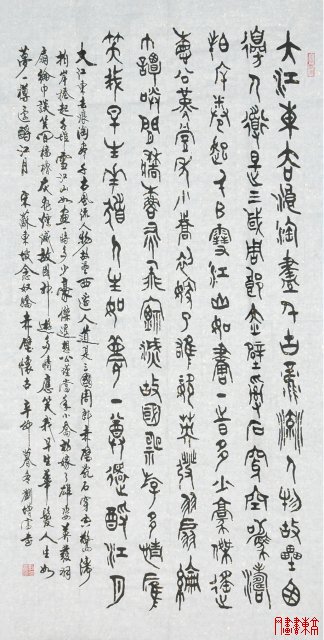 大江東去浪淘盡千古風流人物故壘西
邊人道是三國周郎赤壁亂石穿空驚濤
拍岸捲起千堆雪江山如畫一時多少豪傑遙
想公瑾當年小喬初嫁了雄姿英發羽扇綸
巾談笑間檣櫓灰飛煙滅故國神遊多情應
笑我早生華髮人生如夢一尊還酹江月
大江東去浪淘盡千古風流人物故壘西邊人道是三國周郎赤壁亂石穿空驚濤
拍岸捲起千堆雪江山如畫一時多少豪傑遙想公瑾當年小喬初嫁了雄姿英發羽
扇綸巾談笑間檣櫓灰飛煙滅故國神遊多情應笑我早生華髮人生如
夢一樽還酹江月 宋蘇東坡念奴嬌赤壁懷古 辛卯暮冬劉